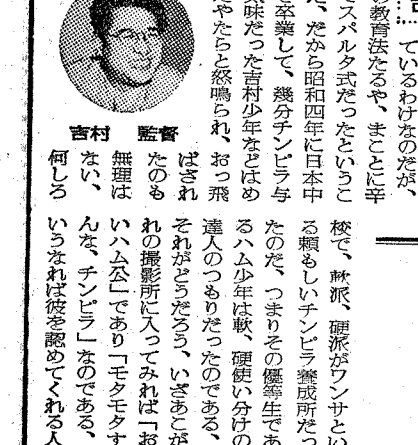 ているわけなのだが、
の教育法たるや、まことに辛
でスパルタ式だったというこ
だから昭和四年に日本中
卒業して、幾分チンピラ与
味だった吉村少年などはめ
やたらと怒鳴られ、おっ飛
ばされ
たのも
無理は
ない、
何しろ
吉村 監督
校で、軟派、硬派がワンサとい
る頼もしいチンピラ養成所だっ
たのだ、つまりその優等生であ
るハム少年は軟、硬使い分けの
達人のつもりだったのである、
それがどうだろう、いざあこが
れの撮影所に入ってみれば「お
いハム公」であり「モタモタす
んな、チンピラ」なのである、
いうなれば彼を認めてくれる人